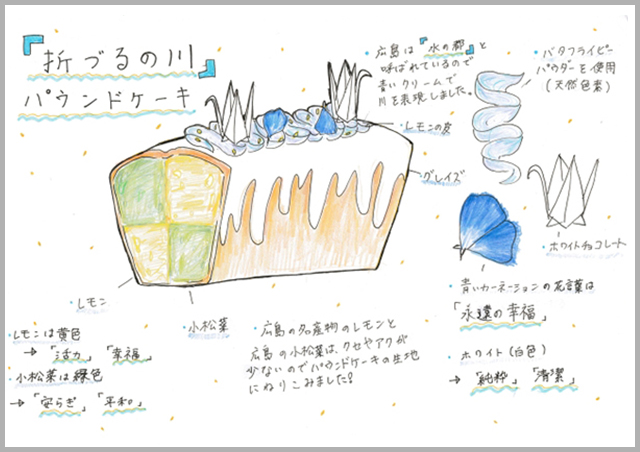 『折づるの川』
パウンドケーキ
・広島は『水の都』と
呼ばれているので
青いクリームで
川を表現しました。
・バタフライピー
パウダーを使用
(天然色素)
・レモンの皮
・グレイズ
・ホワイトチョコレート
・青いカーネーションの花言葉は
「永遠の幸福」
・ホワイト(白色)
→「純粋」「清潔」
・レモン
・小松菜
・レモンは黄色
→「活力」「幸福」
・小松菜は緑色
→「安らぎ」「平和」
・広島の名産物のレモンと
広島の小松菜は、クセやアクが
少ないのでパウンドケーキの生地
にねりこみました!